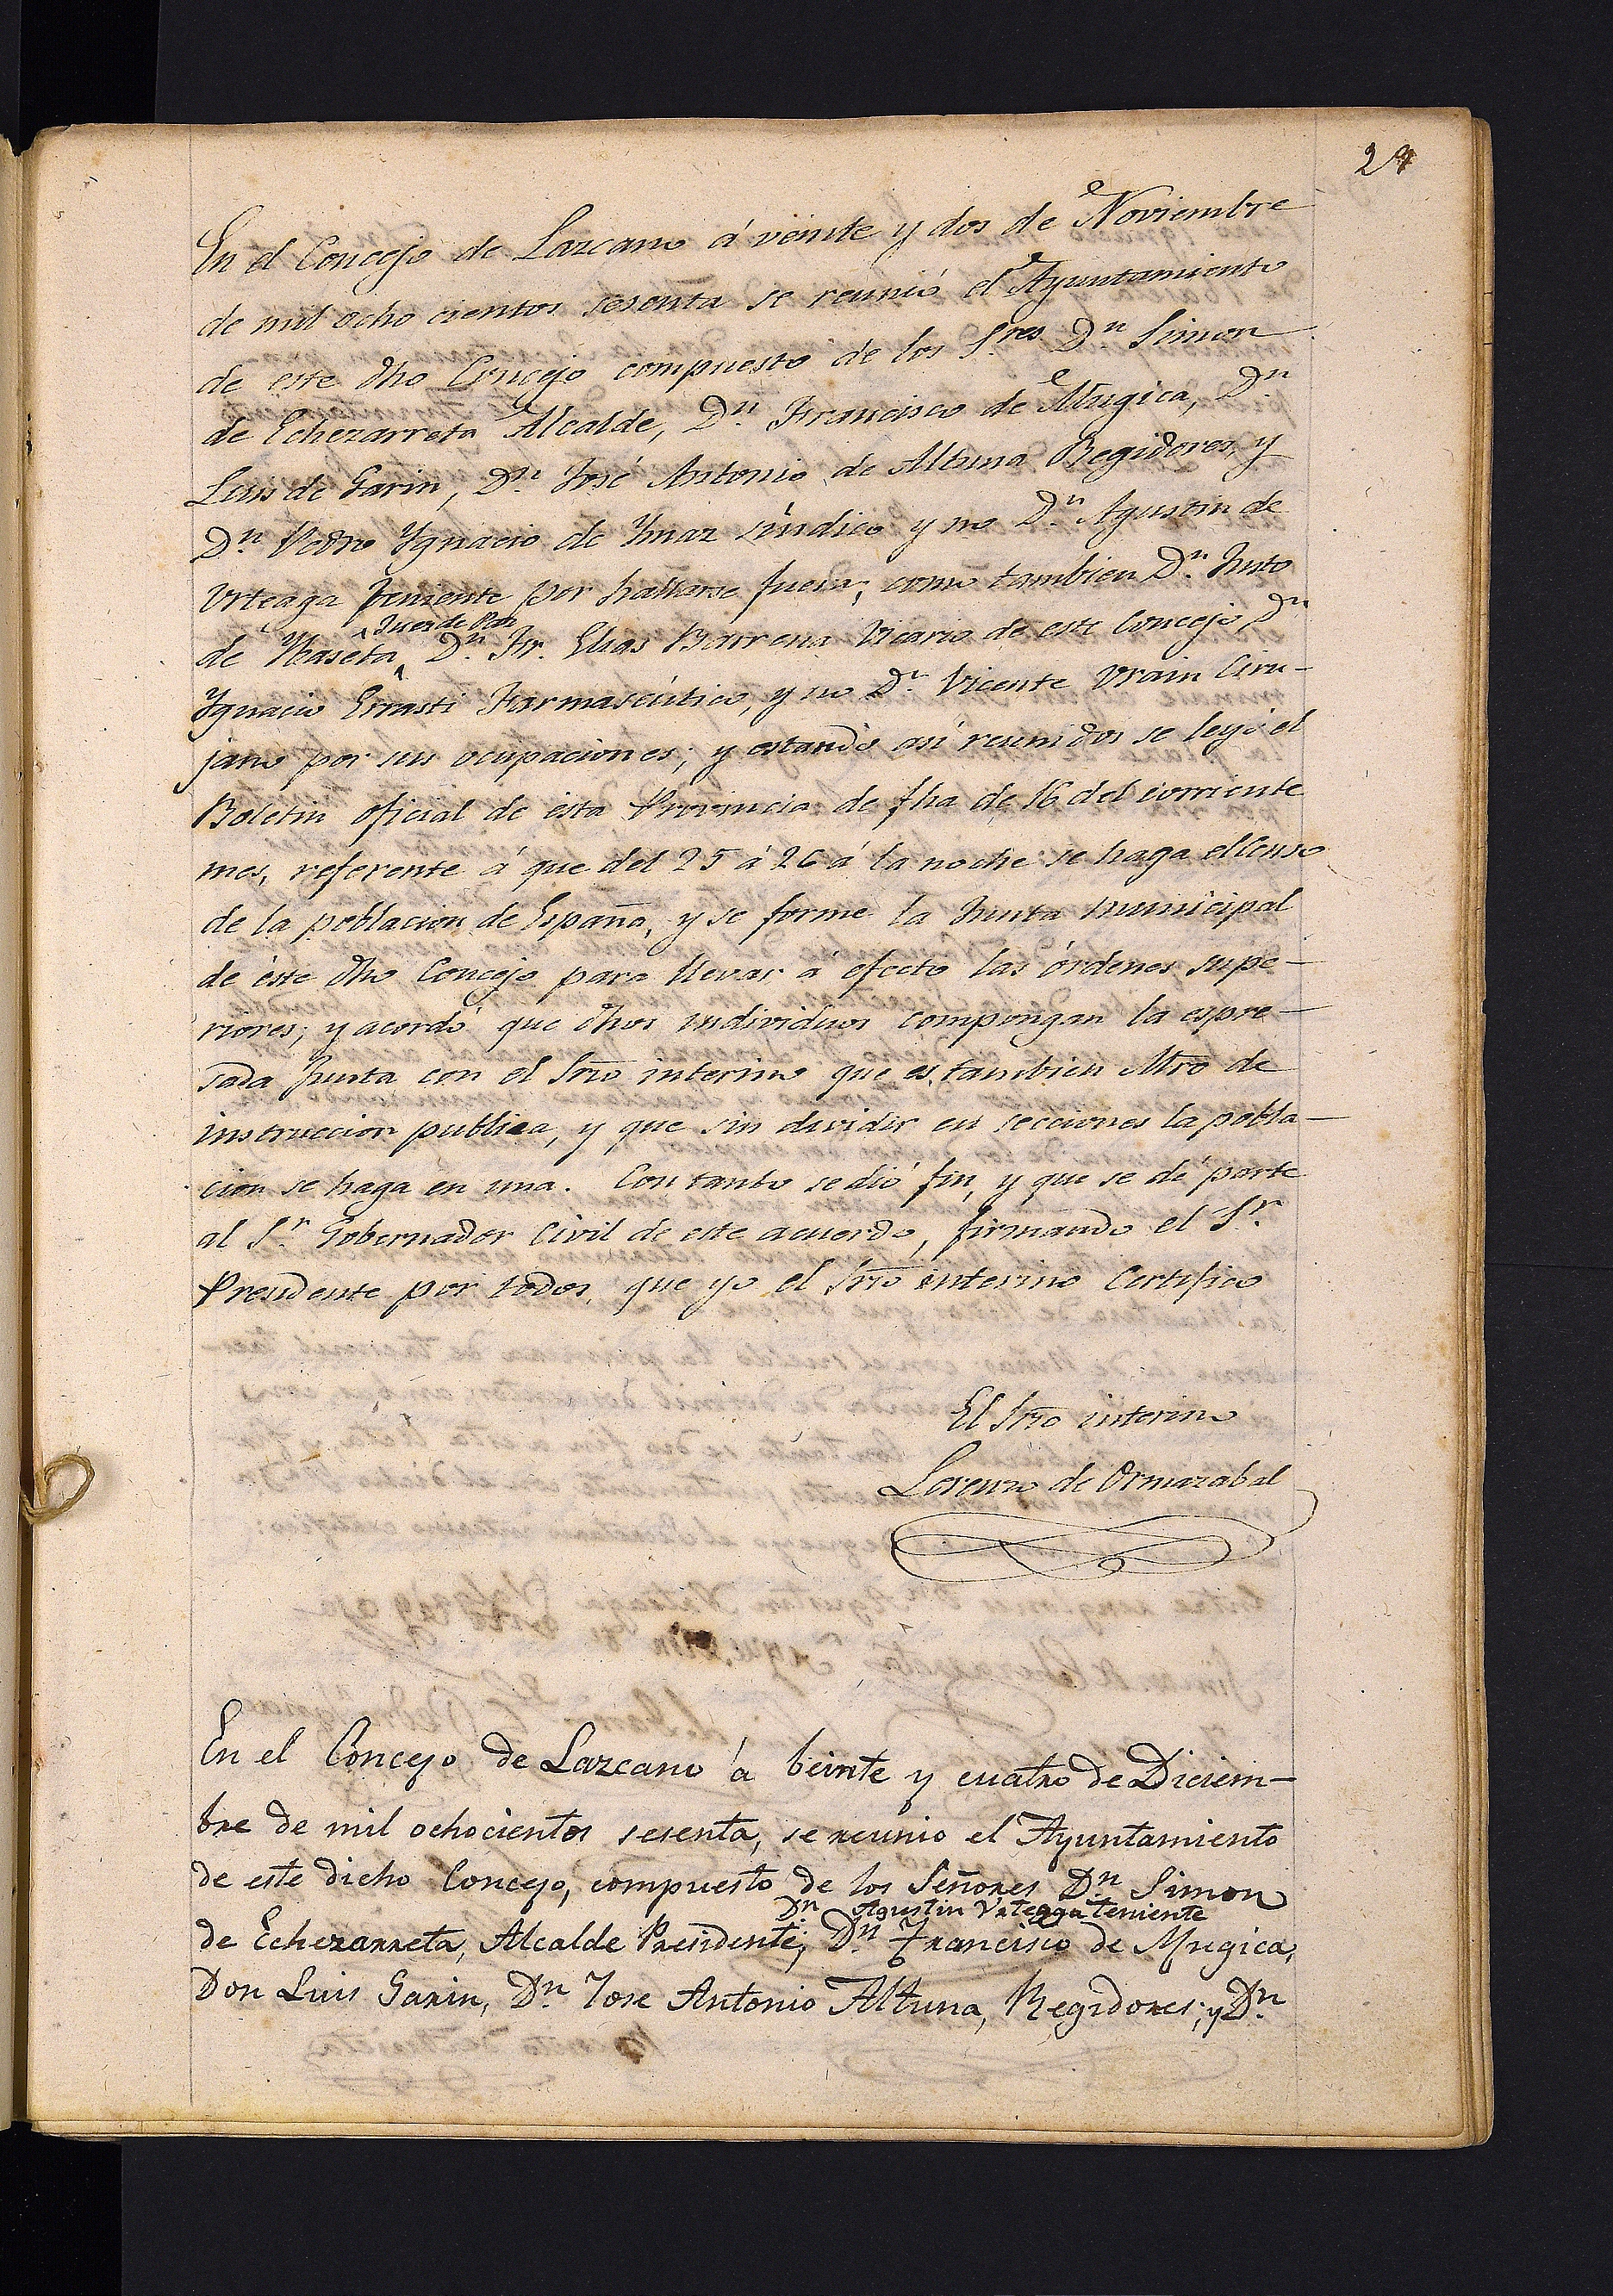 29
En el Concejo de Lazcano á veinte y dos de Noviembre
de mil ocho cientos sesenta se reunió el Ayuntamiento
de este dho Concejo compuesto de los Sres. Dn. Simon
de Echezarreta Alcalde, Dn. Francisco de Mugica, Dn.
Luis de Garin, Dn. José Antonio de Altuna Regidores, y
Dn. Pedro Ygnacio de Ymaz Síndico y no Dn. Agustin de
Urteaga teniente por hallarse fuera, como tambien Dn. Justo
Juez de Paz
de Ybaseta, Dn. Fr. Elias Barrena Vicario de este Concejo, Dn.
Ygnacio Errasti Farmaséutico, y no Dn. Vicente Urain Ciru-
jano por sus ocupaciones; y estando así reunidos se leyó el
Boletin oficial de ésta Provincia de fha de 16 del corriente
mes, referente á que del 25 á 26 á la noche se haga el Censo
de la poblacion de España, y se forme la Junta municipal
de éste dho Concejo para llevar á efecto las órdenes supe-
riores; y acordó que dhos individuos compongan la espre-
sada Junta con el Srio interino que es tambien Mtro de
instruccion publica, y que sin dividir en secciones la pobla-
cion se haga en una. Con tanto se dió fin, y que se dé parte
al Sr. Gobernador Civil de este acuerdo, firmando el Sr.
Presidente por todos, que yo el Srio interino Certifico
El Srio interino
Lorenzo de Ormazabal
En el Concejo de Lazcano á beinte y cuatro de Diciem-
bre de mil ochocientos sesenta, se reunio el Ayuntamiento
de este dicho Concejo, compuesto de los Señores Dn. Simon
Dn. Agustin Urteaga teniente
de Echezarreta, Alcalde Presidente; Dn. Francisco de Mugica,
Don Luis Garin, Dn. Jose Antonio Altuna, Regidores; y Dn.